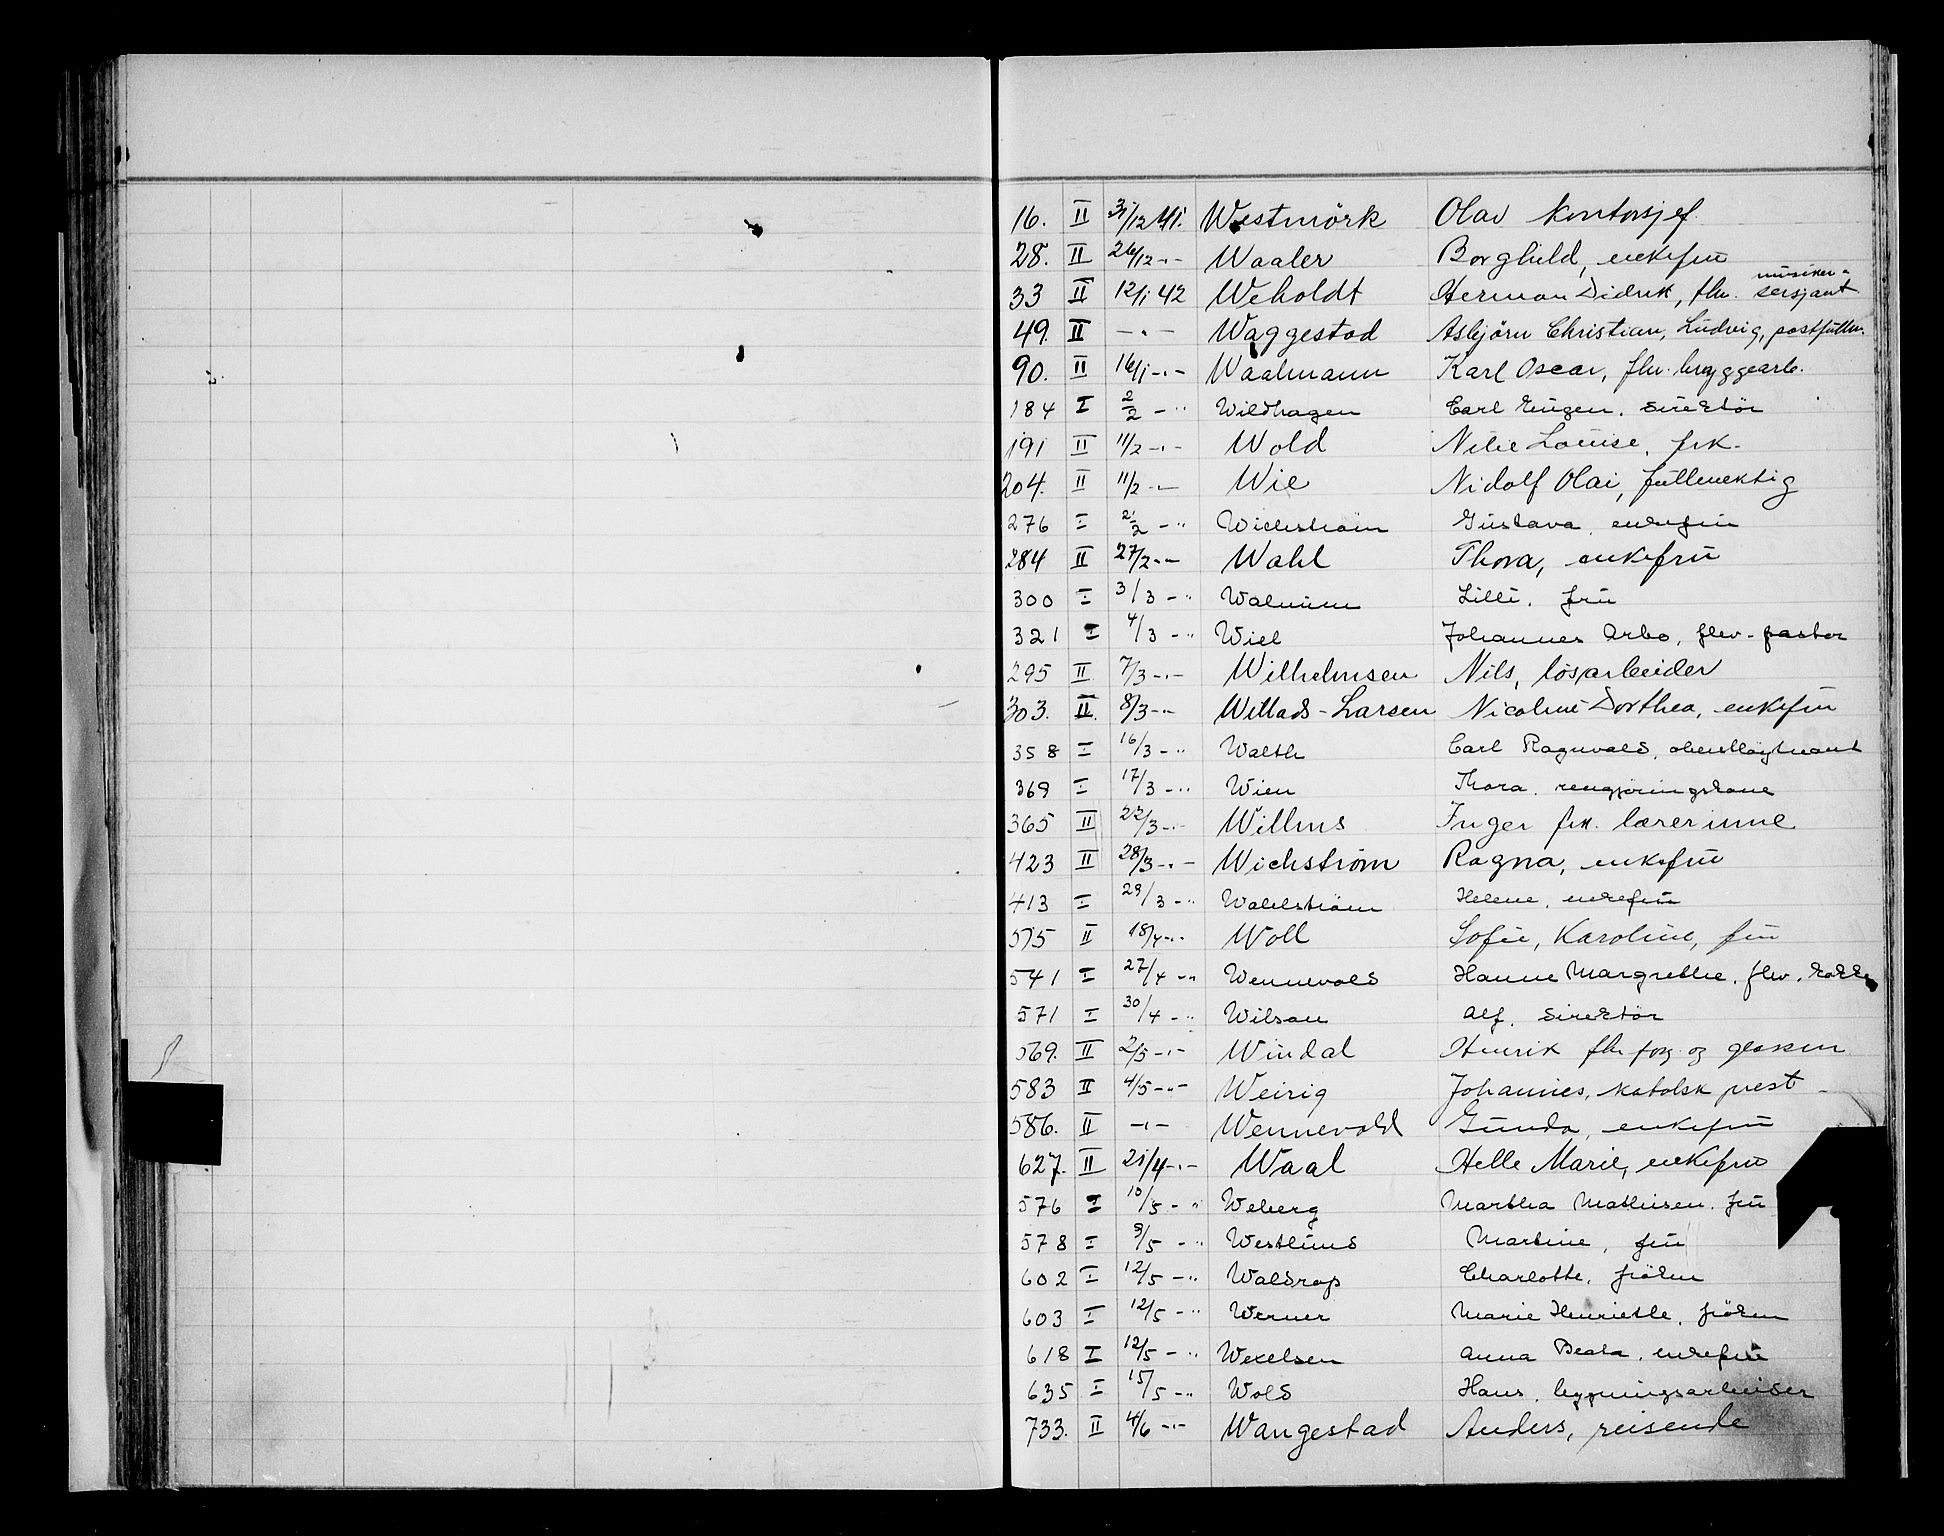 16. II 31/12 41. Westmörk Olav kontorsjef
28. II 26/12 -"- Waaler Borghild, enkefru
musiker-
33 II 12/1 42 Weholdt Herman Didrik, fhv. sersjant
49. II -"- Waggestad Asbjörn Christian, Ludvig, postfullm.
90. II 16/1 -"- Waalmann Karl Oscar, fhv. bryggearb.
184 I 2/2 -" Wildhagen Carl Eugen. direktör
191 II 11/2 -"- Wold Louise, frk.
204. II 11/2 -"- Wie Nidolf Olai, fullmektig
276 I 21/2 -" Wichström Gustava enkefru
284 II 27/2 -"- Wahl Thora, enkefru
300 I 3/3 -" Walnum Lilli. fru
321 I 4/3 -" Wiel Johannes Arbo, fhv. pastor
295 II 7/3 -"- Wilhelmsen Nils, lösarbeider
303. II. 8/3 -"- Willads-Larsen Nicoline Dorthea, enkefru
358 I 16/3 -" Walth Carl Ragnvald, oberstlöytnant
369 I 17/3 -" Wien Thora. rengjöringskone
365 II 22/3 -"- Willms Inger frk. lærerinne
423 II 28/3 -"- Wichström Ragna, enkefru
413 I 29/3 -" Wahlström Helene, enkefru
515 II 18/4 -"- Woll Sofie, Karoline, fru
541 I 27/4 -" Wennevold Hanne Margrethe, fhv. kokke
571 I 30/4 -" Wilson Alf. direktör
569. II 2/5 -"- Windal Henrik fhv og
583 II 4/5 -"- Weirig Johannes, katolsk prest
586. II -"- Wennevold Gunda, enkefru
627. II 21/4 -"- Waal Helle Marie, enkefru
576 I 10/5 -" Weberg Martha Mathisen. fru
578 I 8/5 -" Westlund Martine, fru
602 I 12/5 -" Waldrop Charlotte, fröken
603 I 12/5 -" Werner Marie Henriette, fröken
618 I 12/5 -" Wexelsen Anna Beata, enkefru
635 I 15/5 -" Wold Hans, bygningsarbeider
733. II 4/6 -"- Wangestad Anders, reisende